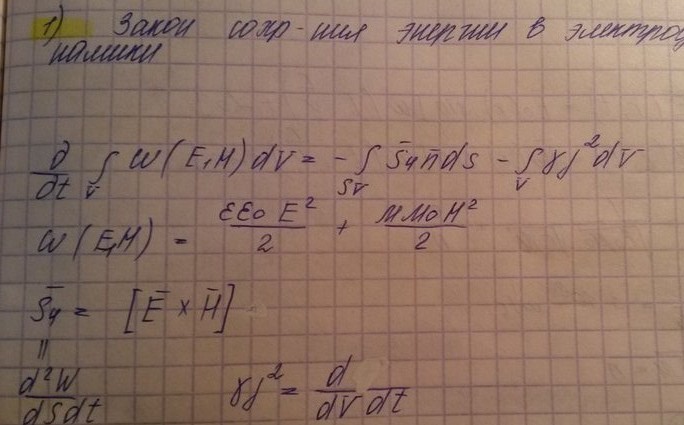 1) Закон сохр-ния энергии в электрод
намики
d/dt ∫_V w(E,H)dV = - ∫_SV S̄ч n̄ ds - ∫_V γj² dV
w(E,H) = εε₀E²/2 + μμ₀H²/2
S̄ч = [Ē × H̄]
||
d²W/dSdt γj² = d/dV dt